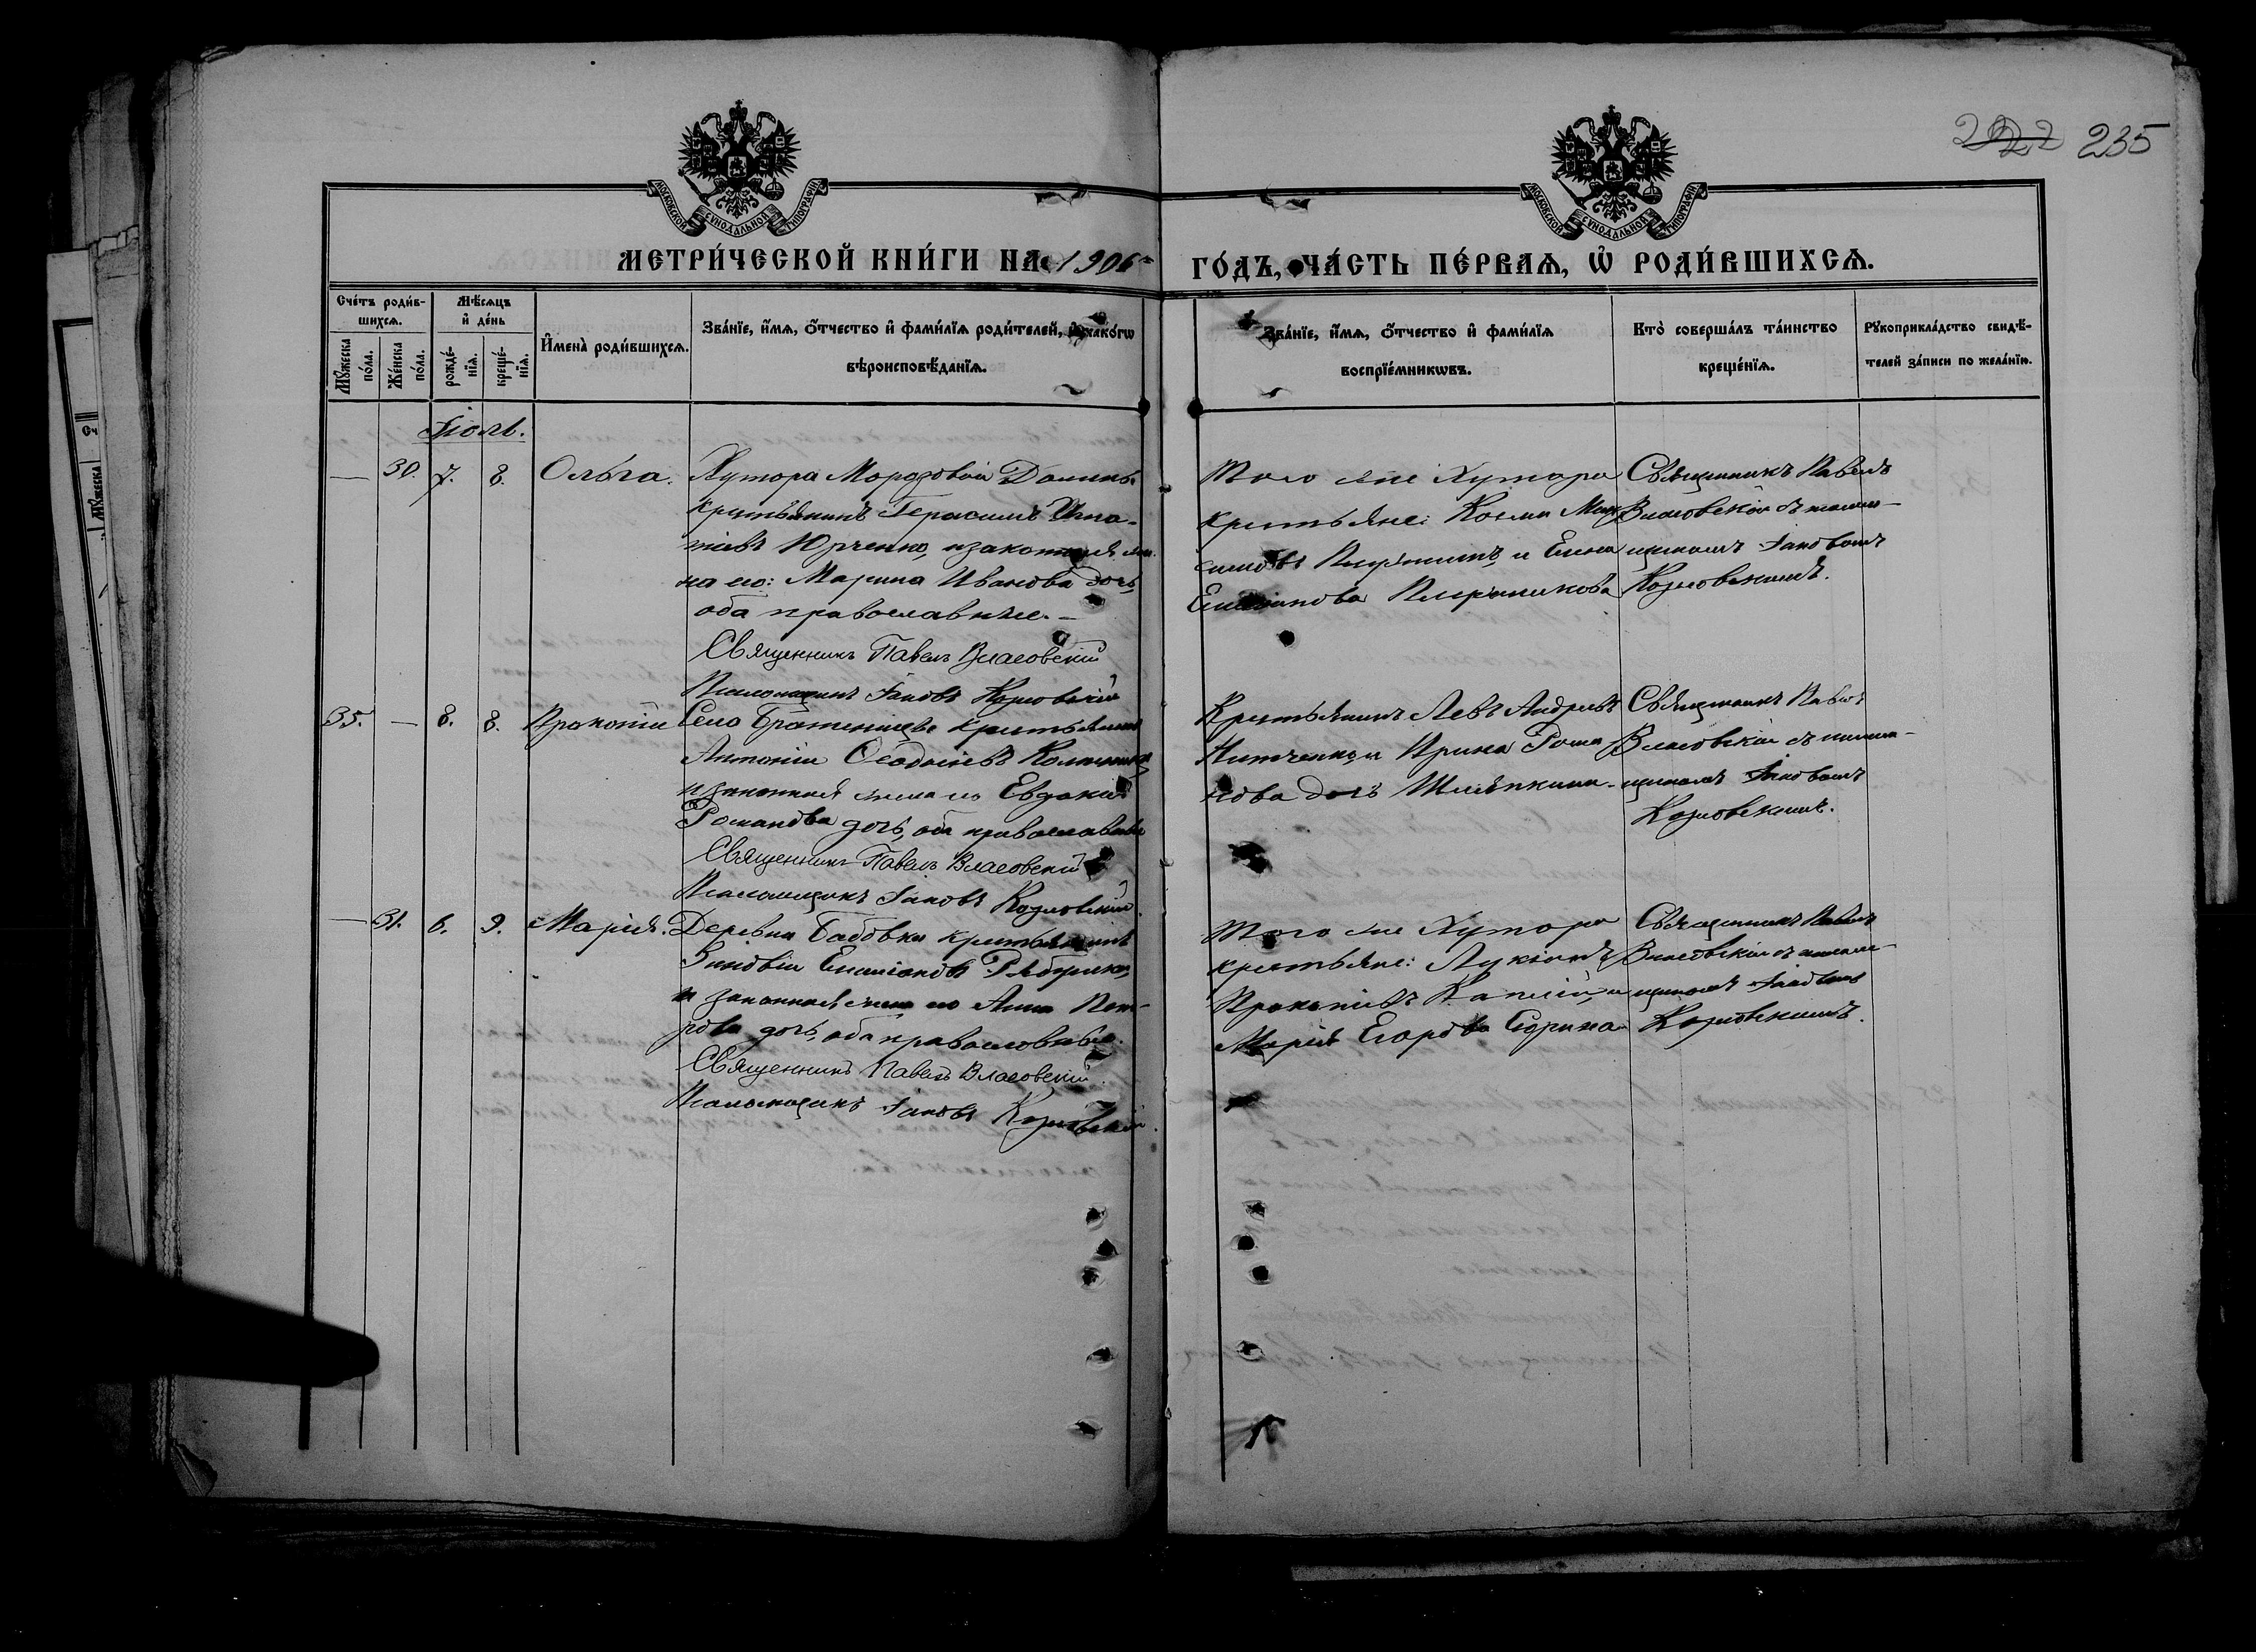 2227 235
МОСКОВСКОЙ СУНОДАЛЬНОЙ ТИПОГРАФІИ
МОСКОВСКОЙ СУНОДАЛЬНОЙ ТИПОГРАФІИ
МЕТРИ́ЧЕСКОЙ КНИ́ГИ НА 1906 ГО́ДЪ, ЧА́СТЬ ПЕ́РВАѦ, Ѡ҆ РОДИ́ВШИХСѦ.
Сче́тъ роди́в-
шихсѧ.
Мѣ́сѧцъ
и҆ де́нь
Мꙋ́жеска
по́ла.
Же́нска
по́ла.
рожде́-
нїѧ.
креще́-
нїѧ.
И҆мена̀ роди́вшихсѧ.
Зва́нїе, и҆́мѧ, ѻ҆́тчество и҆ фами́лїѧ роди́телей, и҆ како́гѡ
вѣроисповѣ́данїѧ.
Зва́нїе, и҆́мѧ, ѻ҆́тчество и҆ фами́лїѧ
воспрїе́мникѡвъ.
Кто̀ соверша́лъ та́инство
креще́нїѧ.
Рꙋкоприкла́дство свидѣ́-
телей за́писи по жела́нїю.
Іюль.
— 30. 7. 8. Ольга.
Хутора Морозовой Долины
крестьянинъ Герасимъ Игна-
тіевъ Юрченко, и законная же-
на его: Марина Иванова дочь,
оба православные. —
Священникъ Павелъ Власовскій
Псаломщикъ Іаковъ Козловскій
Того же Хутора
крестьяне: Косма Мак-
симовъ и Елена
Емеліанова
Священникъ Павелъ
Власовскій съ псалом-
щикомъ Іаковомъ
Козловскимъ.
35. — 8. 8. Прокопій
Села Братеницы крестьянинъ
Антоній Ѳеодосіевъ
и законная жена его Евдокія
Романова дочь, оба православные
Священникъ Павелъ Власовскій
Псаломщикъ Іаковъ Козловскій.
Крестьянинъ Левъ Андреевъ
и Ирина Рома-
нова дочь
Священникъ Павелъ
Власовскій съ псалом-
щикомъ Іаковомъ
Козловскимъ.
— 31. 6. 9. Марія.
Деревни Бабовки крестьянинъ
Зиновій Емеліановъ
и законная жена его Анна Пет-
рова дочь, оба православные.
Священникъ Павелъ Власовскій.
Псаломщикъ Іаковъ Козловскій.
Того же Хутора
крестьяне: Лукіанъ
Прокопіевъ и
Марія Егорова
Священникъ Павелъ
Власовскій съ псалом-
щикомъ Іаковомъ
Козловскимъ.
Сч
Мꙋ́жеска